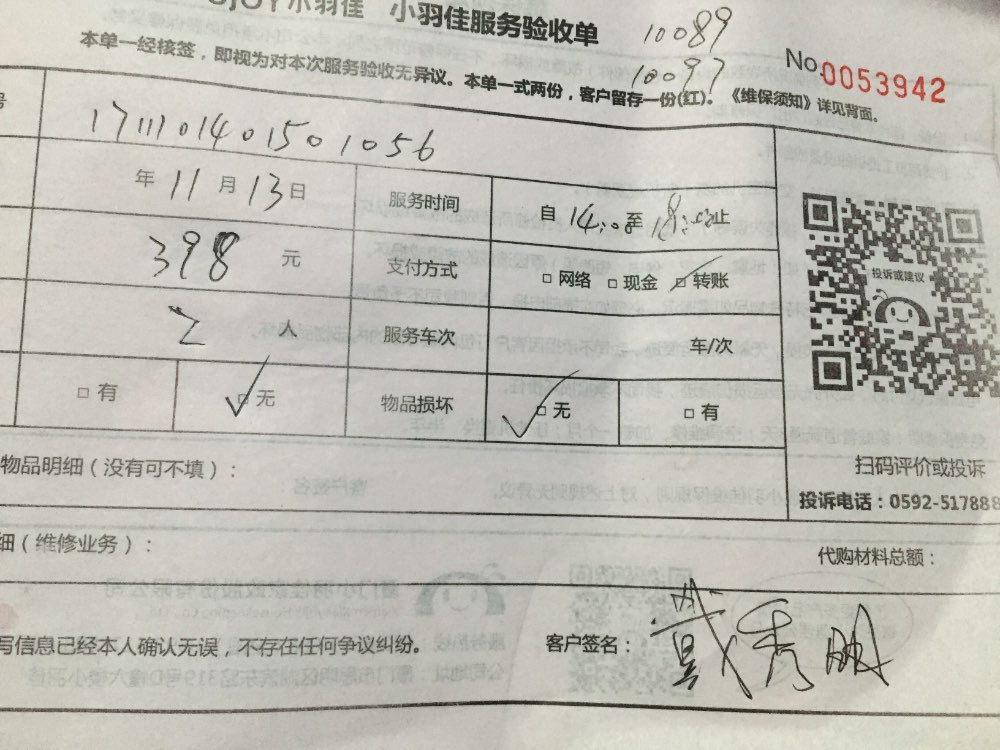 小羽佳 小羽佳服务验收单
10089
10097
No.0053942
本单一经核签，即视为对本次服务验收无异议。本单一式两份，客户留存一份(红)。《维保须知》详见背面。
号
171110140150 1056
年 11 月 13 日 服务时间 自 14:00 至 18: 止
398 元 支付方式 □ 网络 □ 现金 □ 转账
2 人 服务车次 车/次
□ 有 □ 无 物品损坏 □ 无 □ 有
投诉或建议
扫码评价或投诉
投诉电话：0592-517888
物品明细（没有可不填）：
细（维修业务）： 代购材料总额：
写信息已经本人确认无误，不存在任何争议纠纷。 客户签名：戴秀明